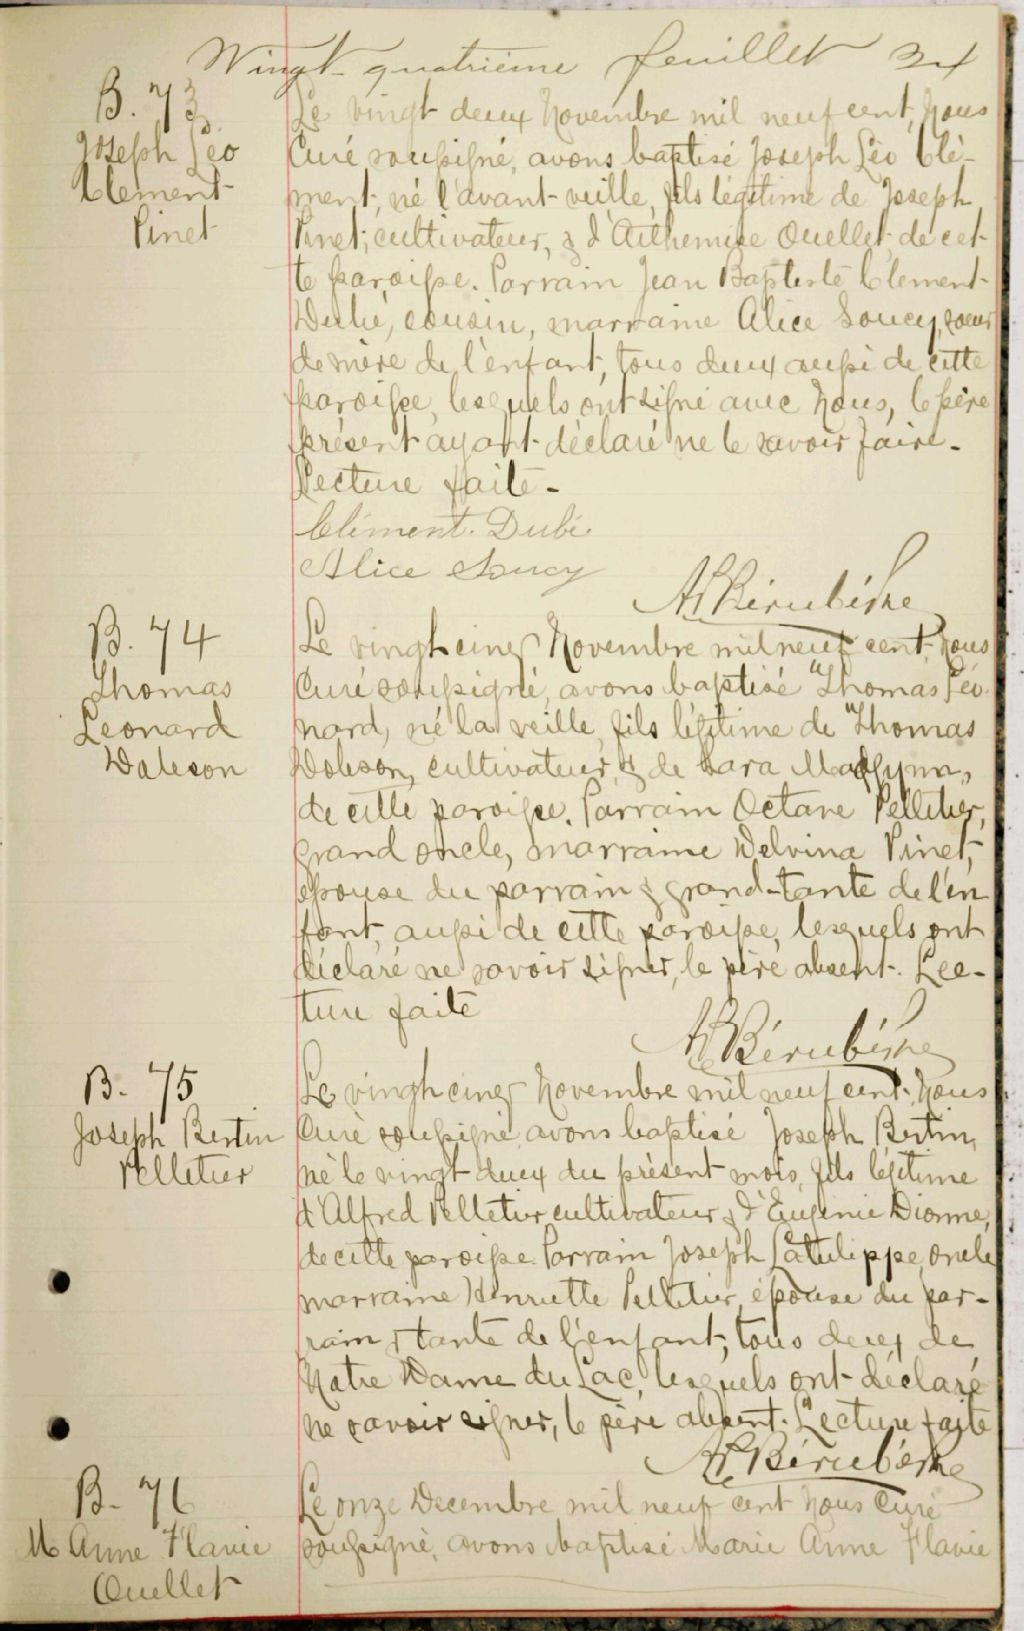 Wingt-quatrième feuillet 24
B. 73
Joseph Léo
Clement
Pinet
Le vingt deux Novembre mil neuf cent, Nous
Curé soussigné, avons baptisé Joseph Léo Clé-
ment, né l'avant-veille, fils légitime de Joseph
Pinet, cultivateur, & d'Arthemise Ouellet de cet-
te paroisse. Parrain Jean Baptiste Clement
Dubé, cousin, marraine Alice Soucy, soeur
de mère de l'enfant, tous deux aussi de cette
paroisse, lesquels ont signé avec Nous, le père
présent ayant déclaré ne le savoir faire.
Lecture faite-
Clément. Dubé.
Alice Soucy
A. Bérubé Ptre
B. 74
Thomas
Leonard
Dobson
Le vingt cinq Novembre mil neuf cent, Nous
Curé soussigné, avons baptisé Thomas Léo-
nard, né la veille, fils légitime de Thomas
Dobson, cultivateur, & de Sara
de cette paroisse. Parrain Octave Pelletier,
grand oncle, marraine Delvina Pinet,
épouse du parrain & grand-tante de l'en
fant, aussi de cette paroisse, lesquels ont
déclaré ne savoir signer, le père absent. Lec-
ture faite
A. Bérubé Ptre
B. 75
Joseph Bertin
Pelletier
Le vingt cinq Novembre mil neuf cent, Nous
Curé soussigné avons baptisé Joseph Bertin,
né le vingt deux du présent mois, fils légitime
d'Alfred Pelletier cultivateur & d'Eugénie Dionne,
de cette paroisse. Parrain Joseph Latulippe, oncle
marraine Henriette Pelletier, épouse du par-
rain & tante de l'enfant, tous deux de
Notre Dame du Lac, lesquels ont déclaré
ne savoir signer, le père absent. Lecture faite
A. Bérubé Ptre
B- 76
M Anne Flavie
Ouellet
Le onze Decembre mil neuf cent Nous Curé
soussigné, avons baptisé Marie Anne Flavie